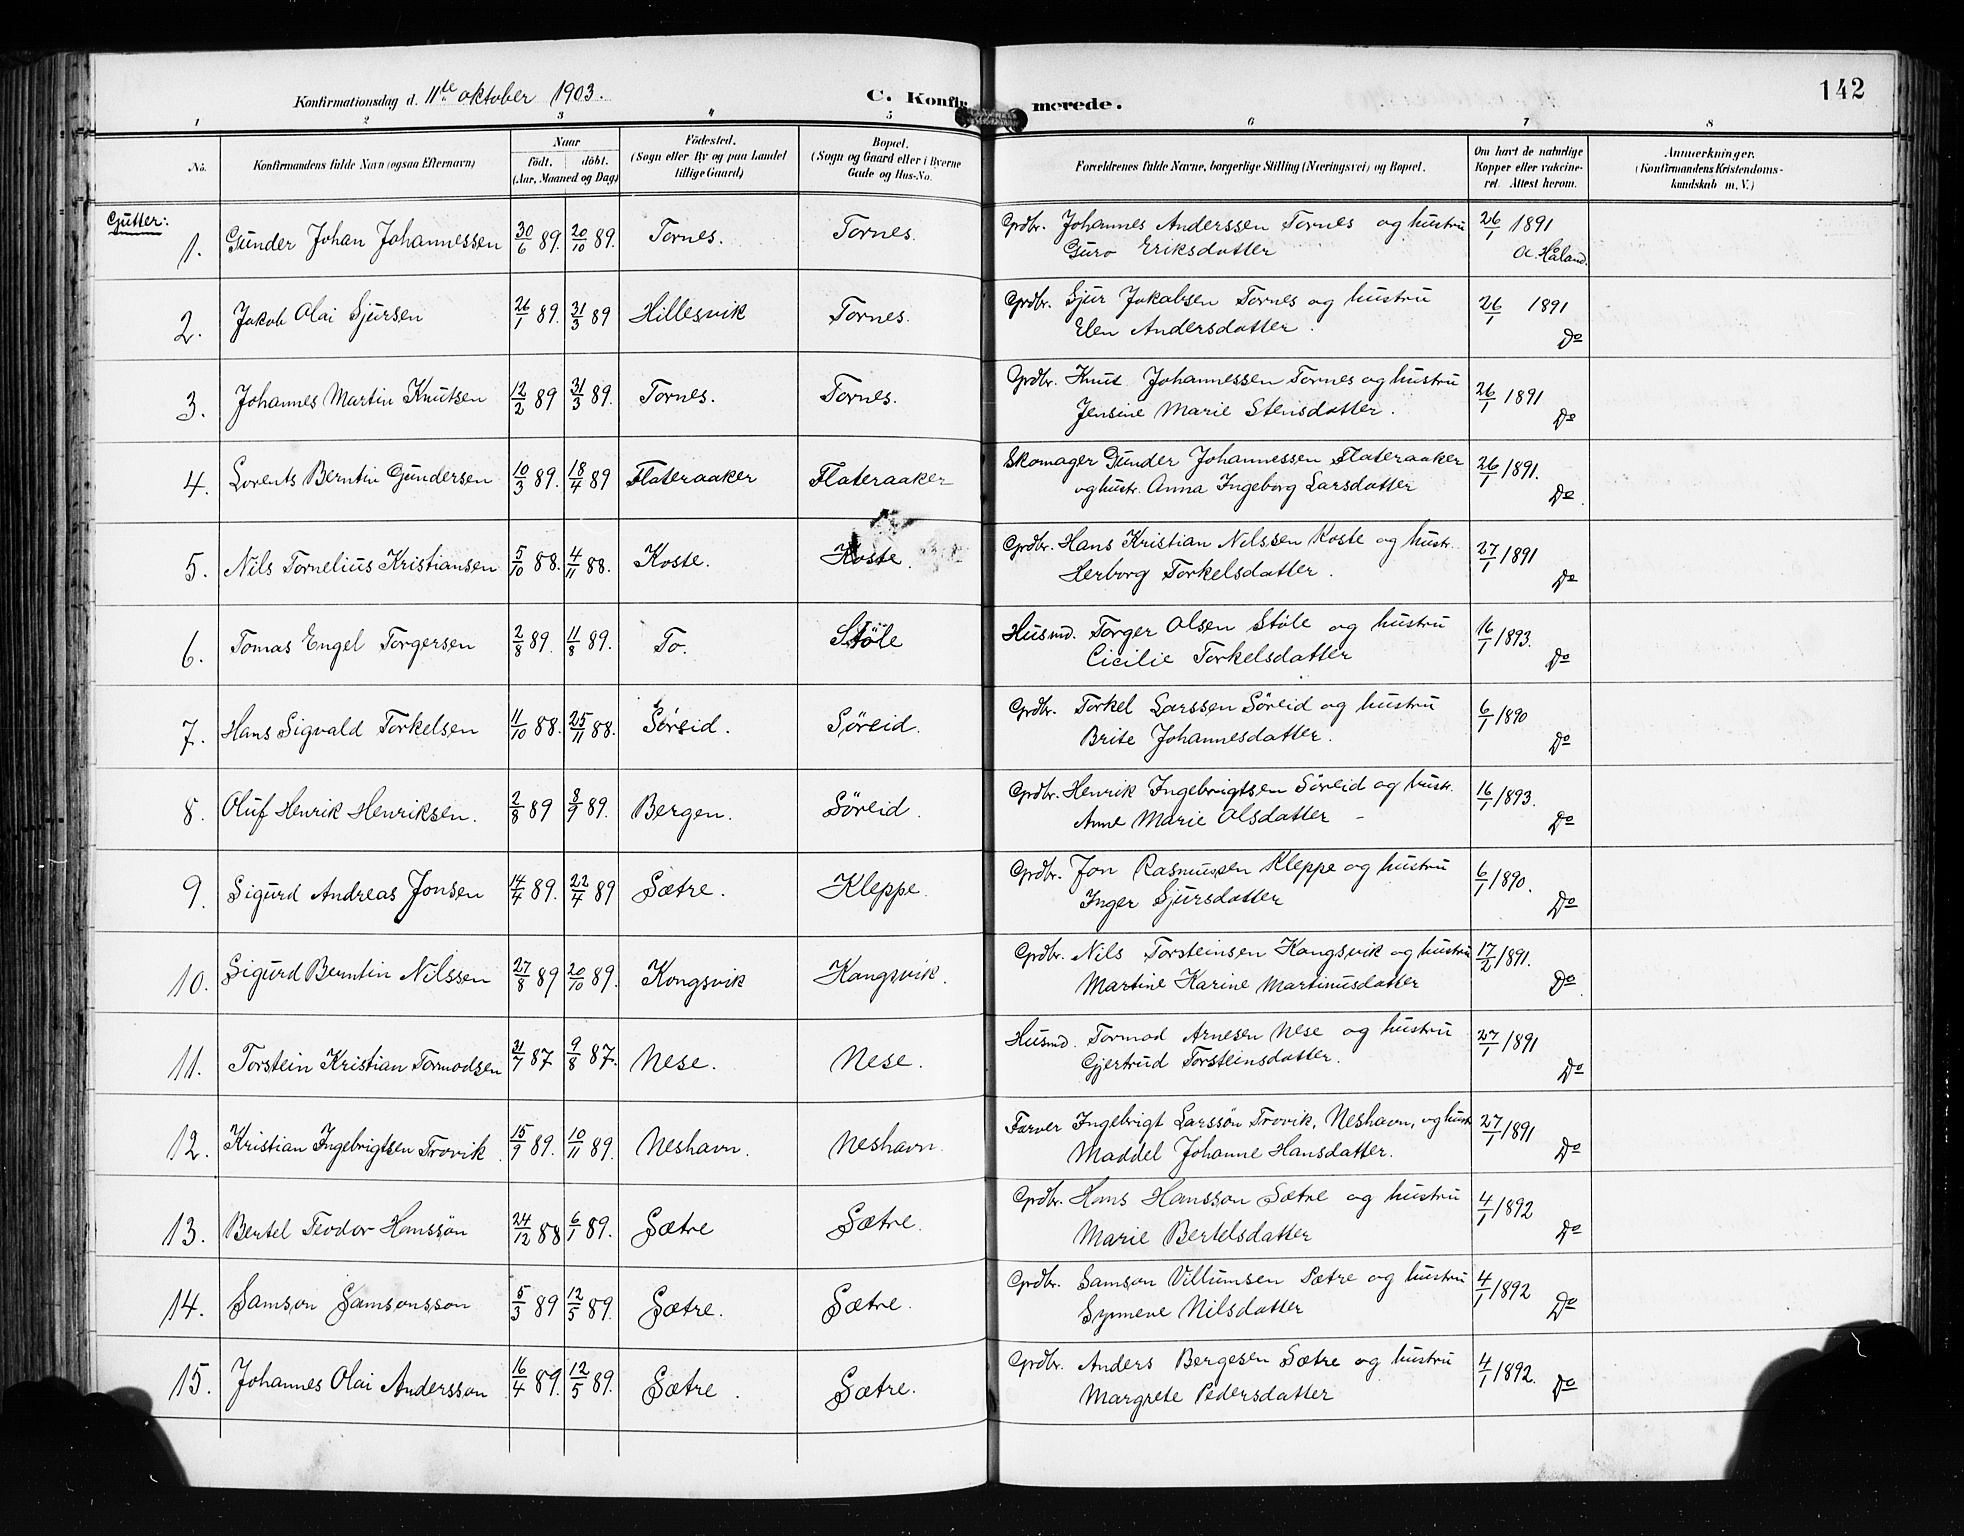 142
Konfirmationsdag d. 11te oktober 1903. C. Konfirmerede.
1 2 3 4 5 6 7 8
No. Konfirmandens fulde Navn (ogsaa Efternavn) Naar födt. döbt. (Aar, Maaned og Dag) Födested. (Sogn eller By og paa Landet tillige Gaard) Bopæl. (Sogn og Gaard eller i Byerne Gade og Hus-No. Forældrenes fulde Navne, borgerlige Stilling (Næringsvei) og Bopæl. Om havt de naturlige Kopper eller vakcineret. Attest herom. Anmærkninger. (Konfirmandens Kristendomskundskab m. V.)
Gutter:
1. Gunder Johan Johannessen 30/6 89. 20/10 89. Tornes. Tornes. Grdbr. Johannes Anderssen Tornes og hustru 26/1 1891
Guro Eriksdatter A. Håland.
2. Jakob Olai Sjursen 26/1 89. 31/3 89 Hillesvik Tornes. Grdbr. Sjur Jakobsen Tornes og hustru 26/1 1891
Elen Andersdatter. Do
3. Johannes Martin Knutsen 12/2 89 31/3 89. Tornes. Tornes. Grdbr. Knut Johannessen Tornes og hustru 26/1 1891
Jensine Marie Stensdatter. Do
4. Lorents Berntin Gundersen 10/3 89. 18/4 89 Flateraaker Flateraaker Skomager Gunder Johannessen Flateraaker 26/1 1891.
og hustr. Anna Ingeborg Larsdatter Do
5. Nils Tornelius Kristiansen 5/10 88. 4/11 88. Koste. Koste. Grdbr. Hans Kristian Nilssen Koste og hustr. 27/1 1891
Herborg Torkelsdatter. Do
6. Tomas Engel Torgersen 2/8 89. 11/8 89. To. Støle Husmd. Torger Olsen Støle og hustru 16/1 1893.
Cicilie Torkelsdatter Do
7. Hans Sigvald Torkelsen 11/10 88. 25/11 88. Søreid. Søreid. Grdbr. Torkel Larssen Søreid og hustru 6/1 1890
Brite Johannesdatter. Do
8. Oluf Henrik Henriksen. 2/8 89 8/9 89. Bergen. Søreid. Grdbr. Henrik Ingebrigtsen Søreid og hustr. 16/1 1893.
Anne Marie Olsdatter Do
9. Sigurd Andreas Jonsen 14/4 89. 22/4 89 Sætre. Kleppe. Grdbr. Jon Rasmussen Kleppe og hustru 6/1 1890.
Inger Sjursdatter Do
10. Sigurd Berntin Nilssen 27/8 89 20/10 89. Kongsvik Kangsvik. Grdbr. Nils Torsteinsen Kangsvik og hustru 17/2 1891.
Martine Karine Martinusdatter Do
11. Torstein Kristian Tormodsen 21/7 87 9/8 87. Nese. Nese. Husmd. Tormod Arnesen Nese og hustru 27/1 1891
Gjertrud Torsteinsdatter. Do
12. Kristian Ingebrigtsen Trovik 15/9 89. 10/11 89. Neshavn. Neshavn. Farver Ingebrigt Larssøn Trovik, Neshavn, og hustr. 27/1 1891
Maddel Johanne Hansdatter. Do
13. Bertel Teodor Hanssøn 24/12 88 6/1 89. Sætre Sætre. Grdbr. Hans Hansson Sætre og hustru 4/1 1892
Marie Bertelsdatter Do
14. Samson Samsonsson 5/3 89 12/5 89. Sætre. Sætre. Grdbr. Samson Villumsen Sætre og hustru 4/1 1892
Synneve Nilsdatter Do
15. Johannes Olai Andersson 16/4 89. 12/5 89. Sætre. Sætre. Grdbr. Anders Bergesen Sætre og hustru 4/1 1892.
Margrete Pedersdatter Do